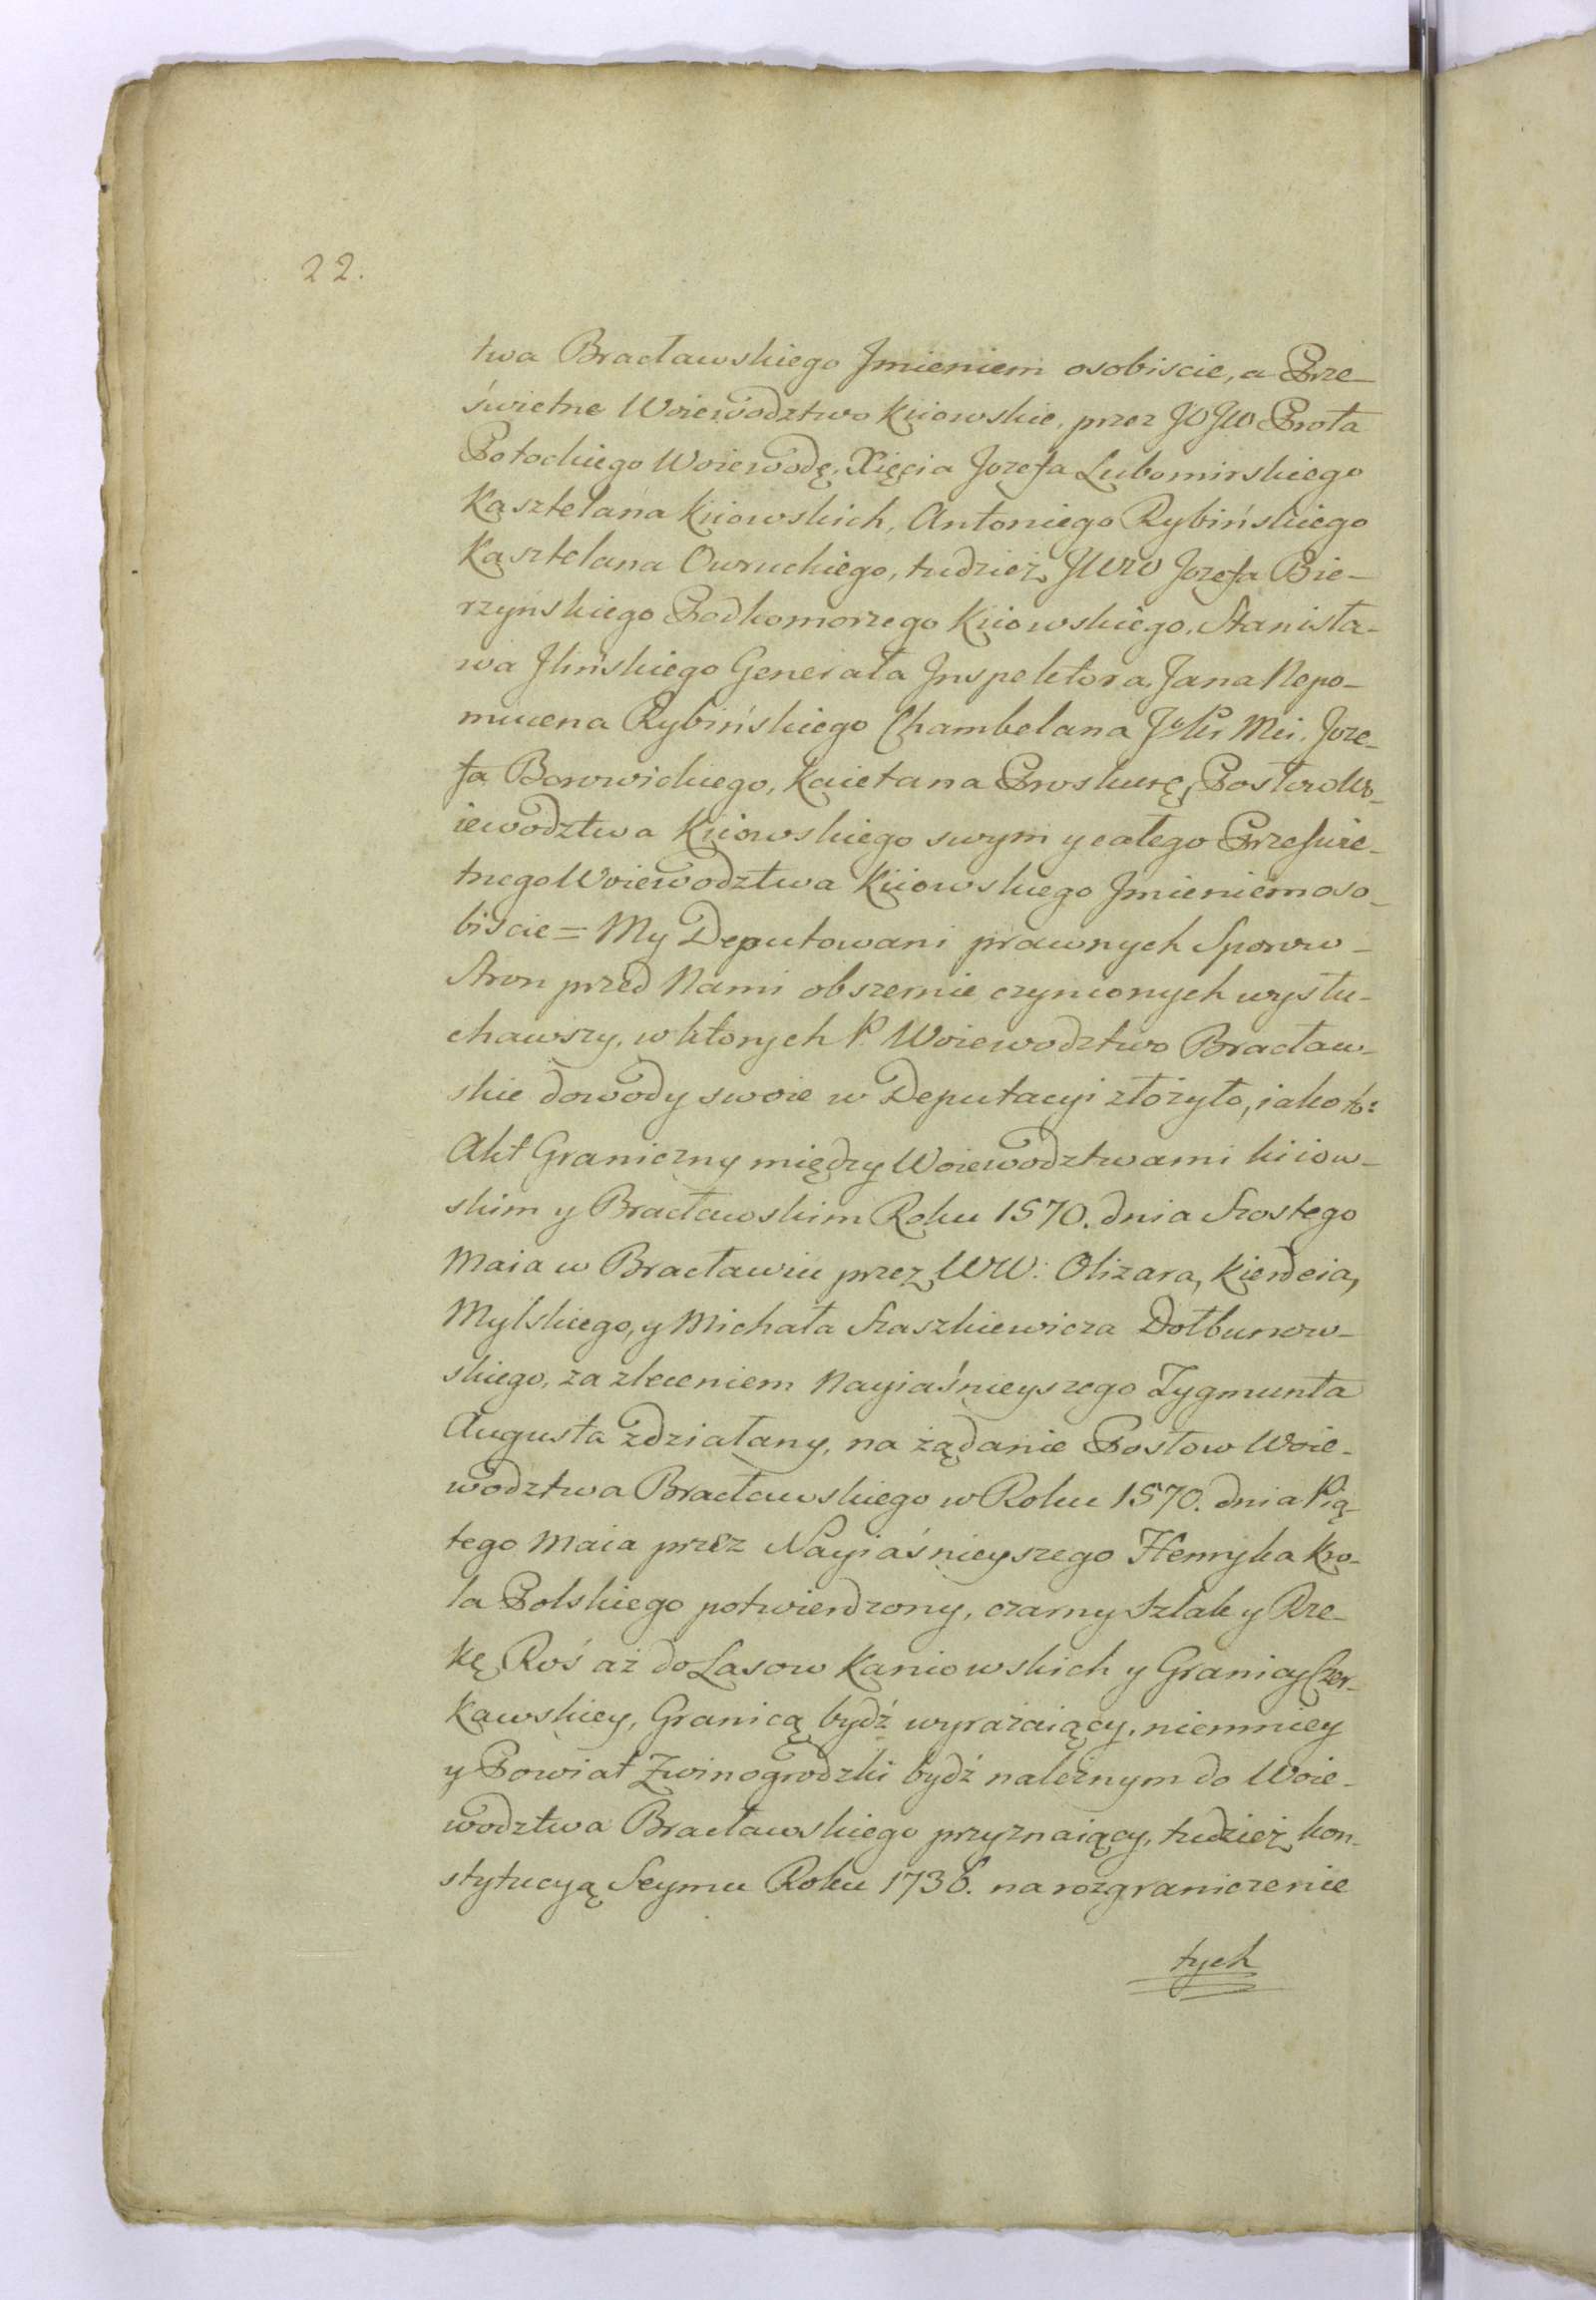 22.
twa Bracławskiego Jmieniem osobiscie, a Prze-
świetne Woiewodztwo Kiiowskie, przez JO JW Prota
Potockiego Woiewodę, Xięcia Jozefa Lubomirskiego
Kasztelana Kiiowskich, Antoniego Rybińskiego
Kasztelana Owruckiego, tudzież JWW Jozefa Bie-
rzyńskiego Podkomorzego Kiiowskiego, Stanisła-
wa Jlińskiego Generała Jnspektora, Jana Nepo-
mucena Rybińskiego Chambelana JKr Mci, Joze-
fa Borowickiego, Kaietana Proskurę, Posłow Wo-
iewodztwa Kiiowskiego swym y całego Prześwie-
tnego Woiewodztwa Kiiowskiego Jmieniem oso-
biscie = My Deputowani prawnych Sporow-
Stron przed Nami obszernie czynionych wysłu-
chawszy, w ktorych P. Woiewodztwo Bracław-
skie dowody swoie w Deputacyi złożyło, iako to:
Akt Graniczny między Woiewodztwami kiiow-
skim y Bracławskim Roku 1570. dnia Szostego
Maia w Bracławiu przez WW: Olizara, Kierdeia,
Mylskiego, y Michała Szaszkiewicza Dołbunow-
skiego, za zleceniem Nayiaśnieyszego Zygmunta
Augusta zdziałany, na żądanie Posłow Woie-
wodztwa Bracławskiego w Roku 1570. dnia Pią-
tego Maia przez Nayiaśnieyszego Henryka Kro-
la Polskiego potwierdzony, czarny szlak y Rze-
kę Roś aż do Lasow Kaniowskich y Granicy Czer-
kawskiey, Granicą bydź wyrażaiący, niemniey
y Powiat Zwinogrodzki bydź należnym do Woie-
wodztwa Bracławskiego przyznaiący, tudzież kon-
stytucyą Seymu Roku 1736. na rozgraniczenie
tych